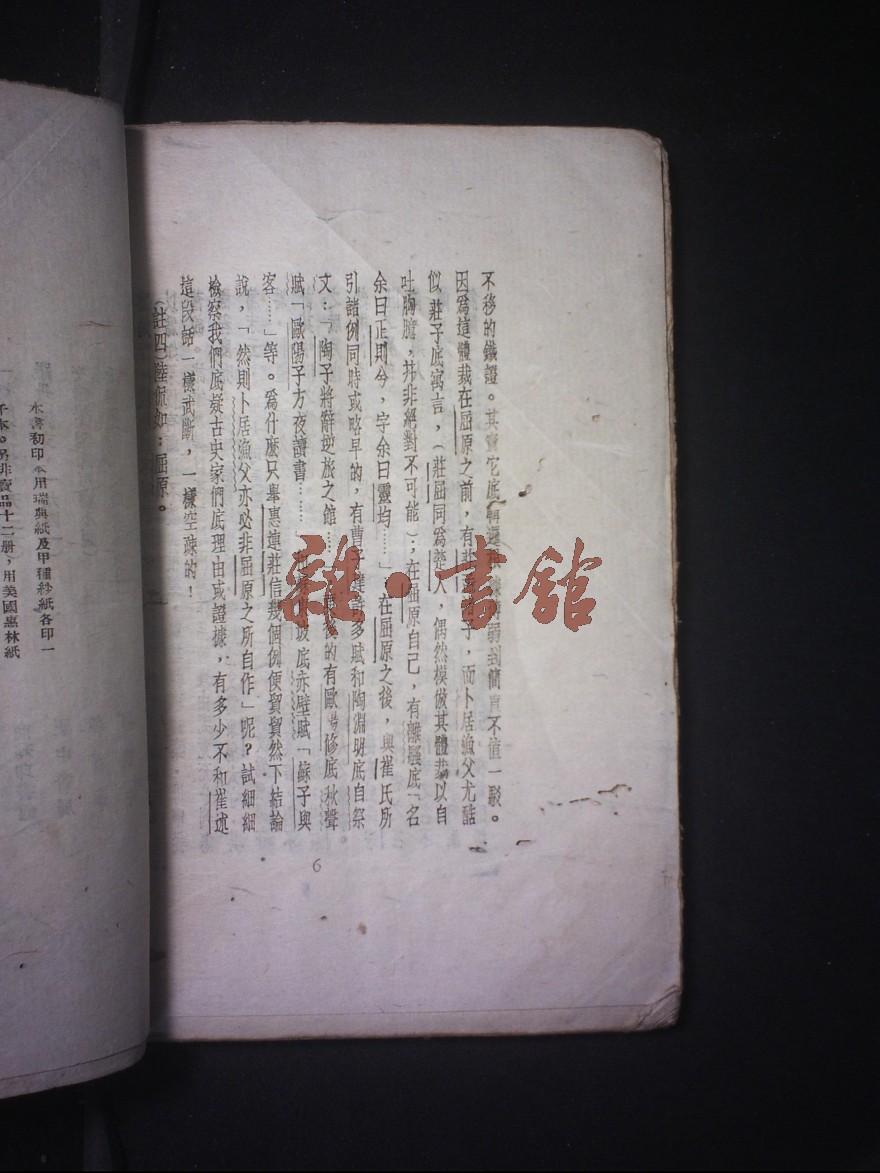 不移的鐵證。其實它底薄弱到簡直不值一駁。
因爲這體裁在屈原之前,有莊子,而卜居漁父尤酷
似莊子底寓言,(莊屈同爲楚人,偶然模倣其體裁以自
吐胸臆,幷非絕對不可能);在屈原自己,有離騷底「名
余曰正則兮,字余曰靈均……」,在屈原之後,與崔氏所
引諸例同時或略早的,有曹子建許多賦和陶淵明底自祭
文:「陶子將辭逆旅之館……後的有歐陽修底秋聲
賦「歐陽子方夜讀書……坡底赤壁賦「蘇子與
客……」等。爲什麽只舉惠連莊信幾個例便貿貿然下結論
說,「然則卜居漁父亦必非屈原之所自作」呢?試細細
檢察我們底疑古史家們底理由或證據,有多少不和崔述
這段話一樣武斷,一樣空疎的!
(註四)陸侃如:屈原。
6
本書初印用瑞典紙及甲種紗紙各印一
千本。另非賣品十二册,用美國惠林紙
雜·書館